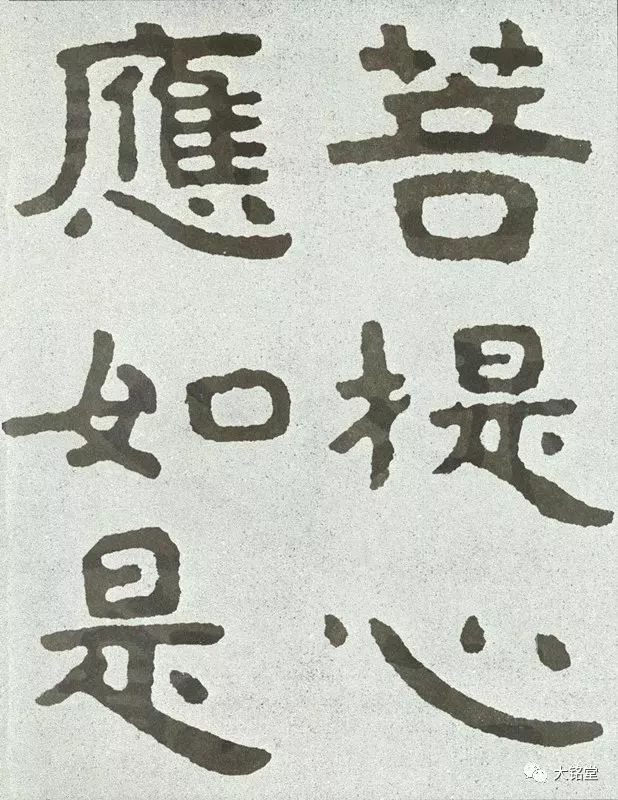 菩提心
應如是
大铭堂